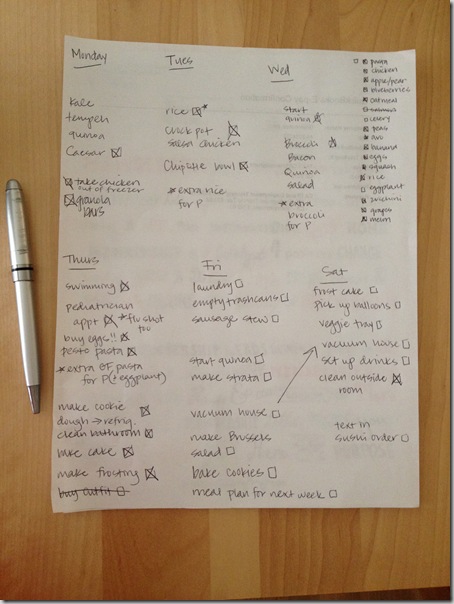 Monday
kale
tempeh
quinoa
Caesar
take chicken
out of freezer
granola
bars
Tues
rice *
Crock pot
salsa chicken
Chipotle bowl
* extra rice
for P
Wed
start
quinoa
Broccoli
Bacon
Quinoa
salad
* extra
broccoli
for P
pasta
chicken
apple/pear
blueberries
oatmeal
celery
peas
avo
banana
eggs
squash
rice
eggplant
zucchini
grapes
melon
Thurs
swimming
pediatrician
appt * flu shot
too
buy eggs!!
pesto pasta
* extra GF pasta
for P (+ eggplant)
make cookie
dough → refrig.
clean bathroom
bake cake
make frosting
buy outfit
Fri
laundry
empty trashcans
sausage stew
start quinoa
make strata
vacuum house
make Brussels
salad
bake cookies
meal plan for next week
Sat
frost cake
pick up balloons
veggie tray
vacuum house
set up drinks
clean outside
room
text in
sushi order